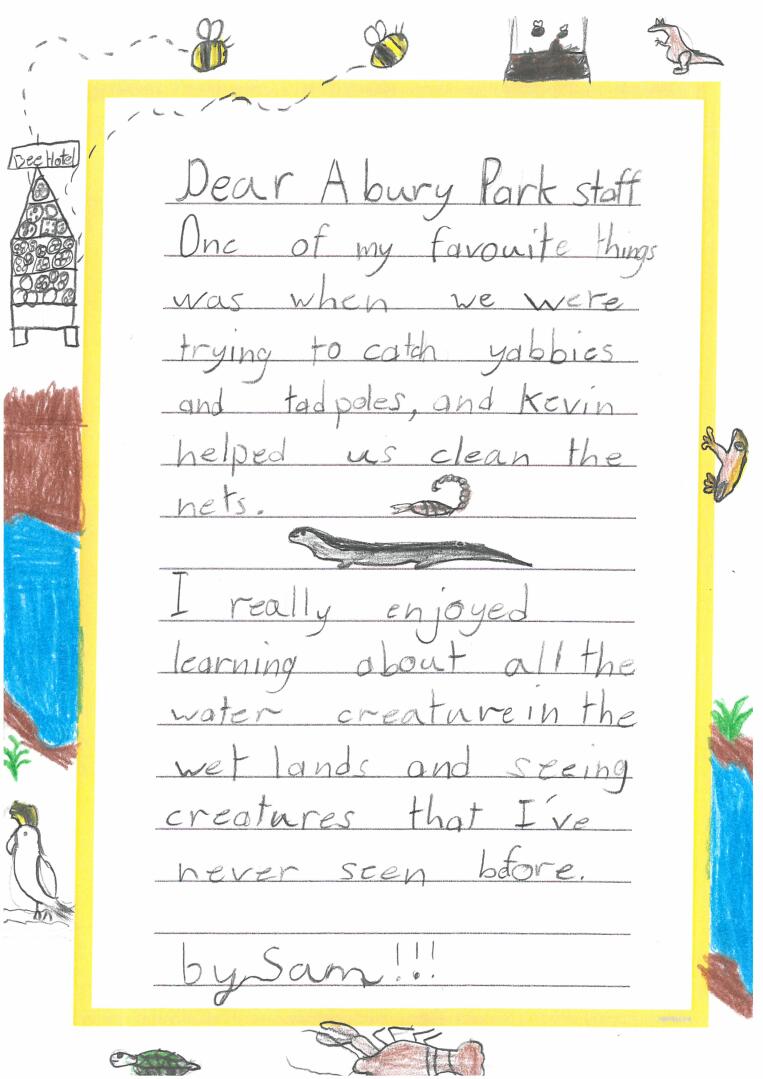 Bee Hotel
Dear Abury Park staff
One of my favouite things
was when we were
trying to catch yabbies
and tadpoles, and Kevin
helped us clean the
nets.
I really enjoyed
learning about all the
water creature in the
wet lands and seeing
creatures that I've
never seen before.
by Sam!!!